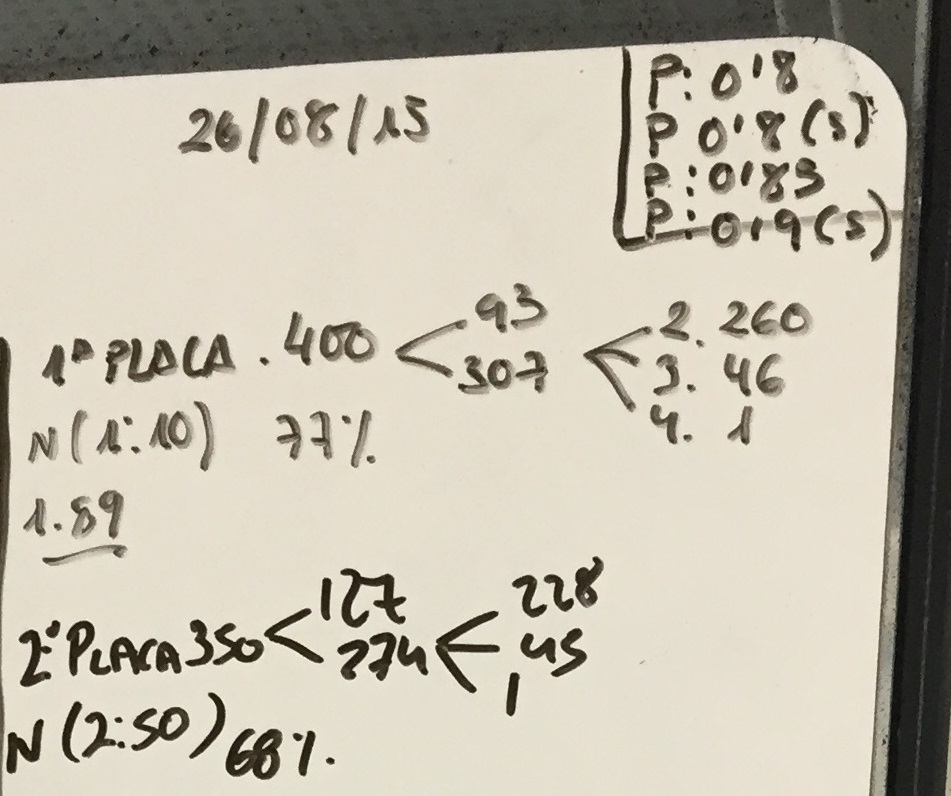 26/08/15
P: 0'8
P 0'8 (S)
P: 0'85
P: 0'9 (S)
1ª PLACA . 400 < 93
307 < 2. 260
3. 46
4. 1
N (1:10) 77%
1.89
2ª PLACA 350 < 127
274 < 228
45
1
N (2:50) 68%.